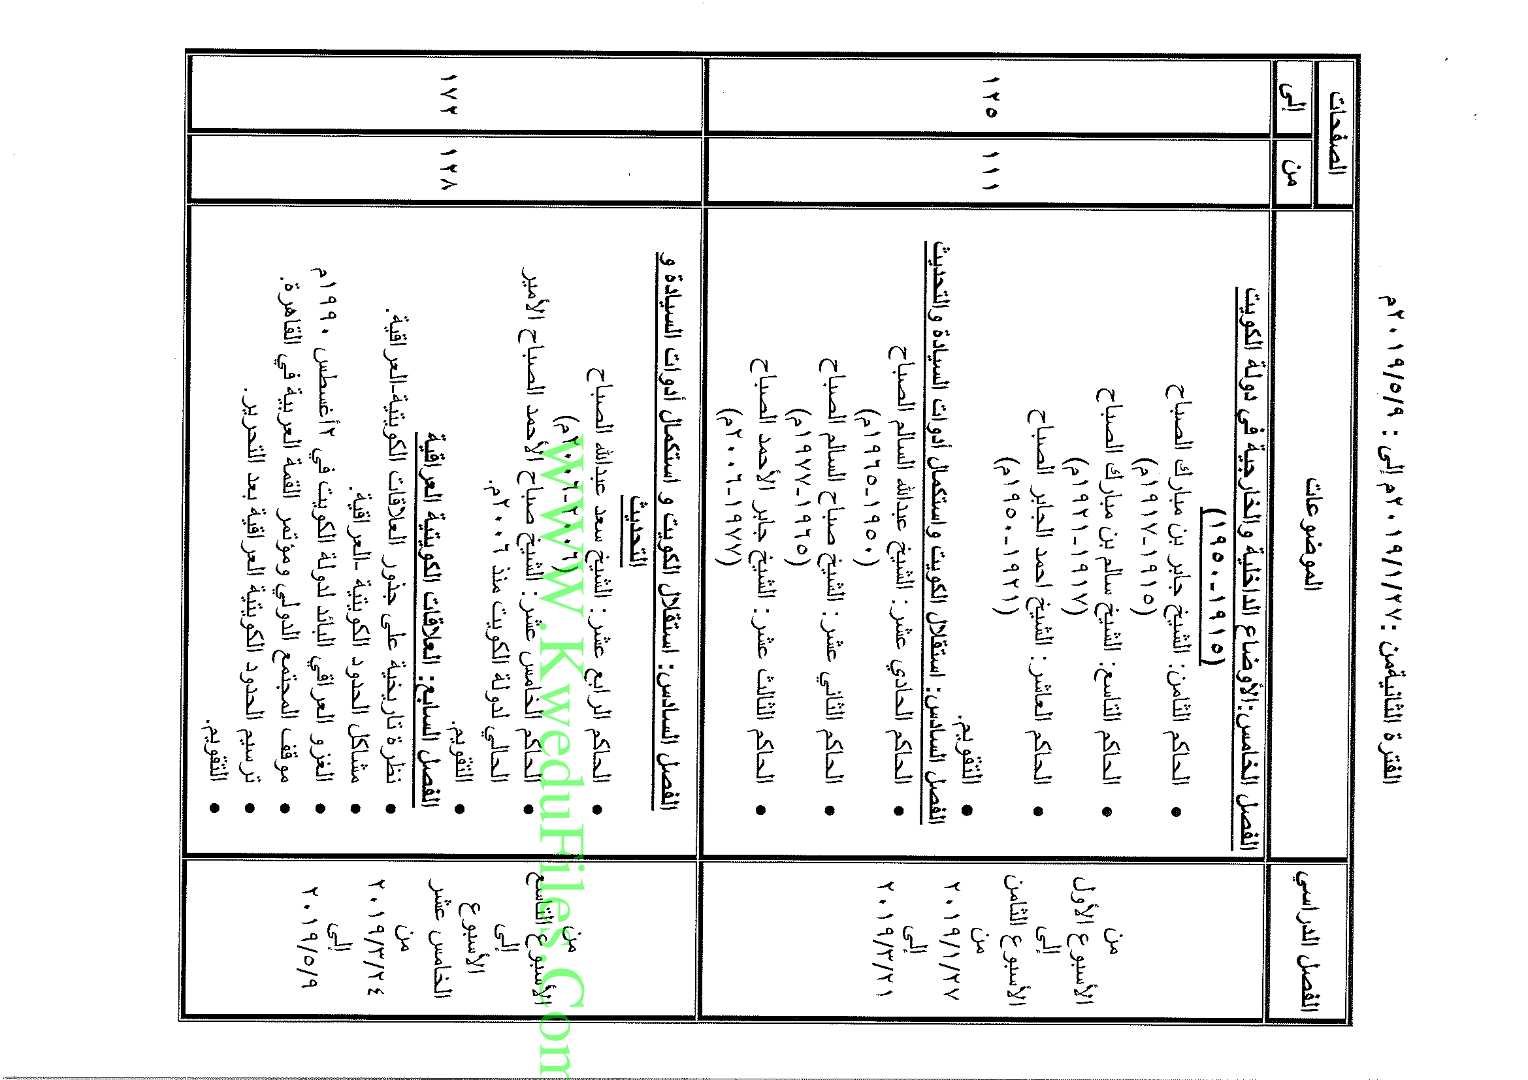 الفترة الثانيةمن :٢٠١٩/١/٢٧م إلى : ٢٠١٩/٥/٩م
الفصل الدراسي
الموضوعات
الصفحات
من
إلى
من
الأسبوع الأول
إلى
الأسبوع الثامن
من
٢٠١٩/١/٢٧
إلى
٢٠١٩/٣/٢١
الفصل الخامس:الأوضاع الداخلية والخارجية في دولة الكويت
(١٩١٥-١٩٥٠)
• الحاكم الثامن: الشيخ جابر بن مبارك الصباح
(١٩١٥-١٩١٧م)
• الحاكم التاسع: الشيخ سالم بن مبارك الصباح
(١٩١٧-١٩٢١م)
• الحاكم العاشر: الشيخ احمد الجابر الصباح
(١٩٢١-١٩٥٠م)
• التقويم.
الفصل السادس: استقلال الكويت واستكمال أدوات السيادة والتحديث
• الحاكم الحادي عشر: الشيخ عبدالله السالم الصباح
(١٩٥٠-١٩٦٥م)
• الحاكم الثاني عشر: الشيخ صباح السالم الصباح
(١٩٦٥-١٩٧٧م)
• الحاكم الثالث عشر: الشيخ جابر الأحمد الصباح
(١٩٧٧-٢٠٠٦م)
١١١
١٢٥
من
الأسبوع التاسع
إلى
الأسبوع
الخامس عشر
من
٢٠١٩/٣/٢٤
إلى
٢٠١٩/٥/٩
الفصل السادس: استقلال الكويت و استكمال أدوات السيادة و
التحديث
• الحاكم الرابع عشر: الشيخ سعد عبدالله الصباح
(٢٠٠٦-٢٠٠٦م)
• الحاكم الخامس عشر: الشيخ صباح الأحمد الصباح الأمير
الحالي لدولة الكويت منذ ٢٠٠٦م.
• التقويم.
الفصل السابع: العلاقات الكويتية العراقية
• نظرة تاريخية على جذور العلاقات الكويتية-العراقية.
• مشاكل الحدود الكويتية -العراقية.
• الغزو العراقي البائد لدولة الكويت في ٢أغسطس ١٩٩٠م
• موقف المجتمع الدولي ومؤتمر القمة العربية في القاهرة.
• ترسيم الحدود الكويتية العراقية بعد التحرير.
• التقويم.
١٢٨
١٧٢
www.KweduFiles.Com